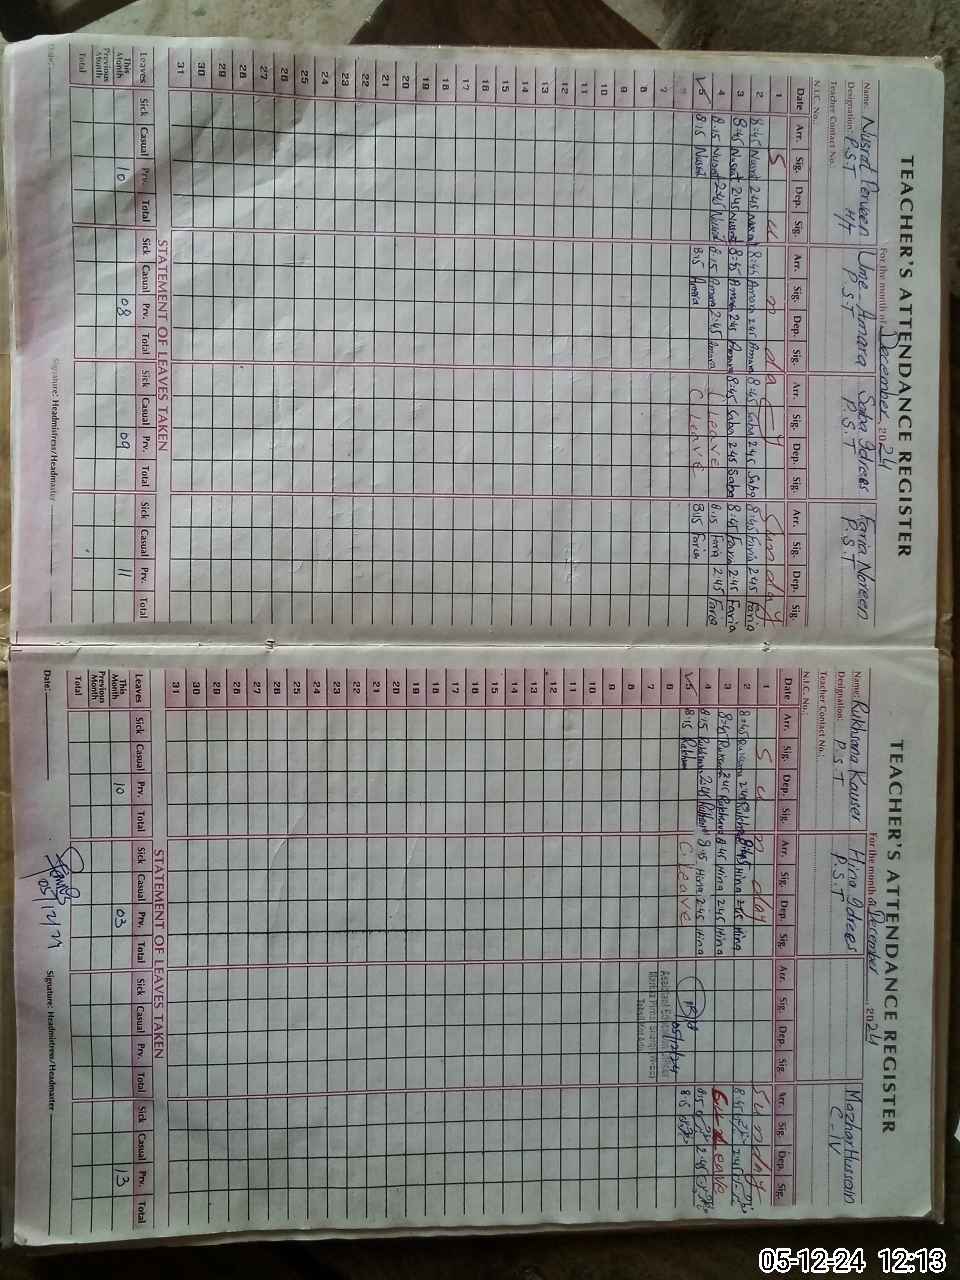 TEACHER'S ATTENDANCE REGISTER
For the month of December, 2024
Name: Nusrat Parveen Ume-Amara Saba Idrees Faria Noreen
Designation: P.S.T H/T P.S.T P.S.T P.S.T
Teacher Contact No.
N.I.C. No.:
Date Arr. Sig. Dep. Sig. Arr. Sig. Dep. Sig. Arr. Sig. Dep. Sig. Arr. Sig. Dep. Sig.
1 S u n d a y Sunday
2 8:45 Nusrat 2:45 Nusrat 8:45 Amara 2:45 Amara 8:45 Saba 2:45 Saba 8:45 Faria 2:45 Faria
3 8:45 Nusrat 2:45 Nusrat 8:45 Amara 2:45 Amara 8:45 Saba 2:45 Saba 8:45 Faria 2:45 Faria
4 8:15 Nusrat 2:45 Nusrat 8:15 Amara 2:45 Amara C Leave 8:15 Faria 2:45 Faria
5 8:15 Nusrat 8:15 Amara C Leave 8:15 Faria
7
8
9
10
11
12
13
14
15
16
17
18
19
20
21
22
23
24
25
26
27
28
29
30
31
STATEMENT OF LEAVES TAKEN
Leaves Sick Casual Prv. Total Sick Casual Prv. Total Sick Casual Prv. Total Sick Casual Prv. Total
This Month 10 08 09 11
Previous Month
Total
Signature: Headmistress/Headmaster
TEACHER'S ATTENDANCE REGISTER
For the month of December, 2024
Name: Rukhsana Kauser Hina Idrees Mazhar Hussain
Designation: P.S.T P.S.T C-IV
Teacher Contact No.:
N.I.C. No.:
Date Arr. Sig. Dep. Sig. Arr. Sig. Dep. Sig. Arr. Sig. Dep. Sig. Arr. Sig. Dep. Sig.
1 S u n day Sunday
2 8:45 2:45 8:45 Hina 2:45 Hina 8:45 2:45
3 8:45 2:45 8:45 Hina 2:45 Hina Leave
4 8:15 2:45 8:15 Hina 2:45 Hina 8:15 2:45
5 8:15 C. Leave 05/12/24 8:15
6
7
8
9
10
11
12
13
14
15
16
17
18
19
20
21
22
23
24
25
26
27
28
29
30
31
STATEMENT OF LEAVES TAKEN
Leaves Sick Casual Prv. Total Sick Casual Prv. Total Sick Casual Prv. Total Sick Casual Prv. Total
This Month 10 03 13
Previous Month
Total
05/12/24
Date: Signature: Headmistress/Headmaster
05-12-24 12:13